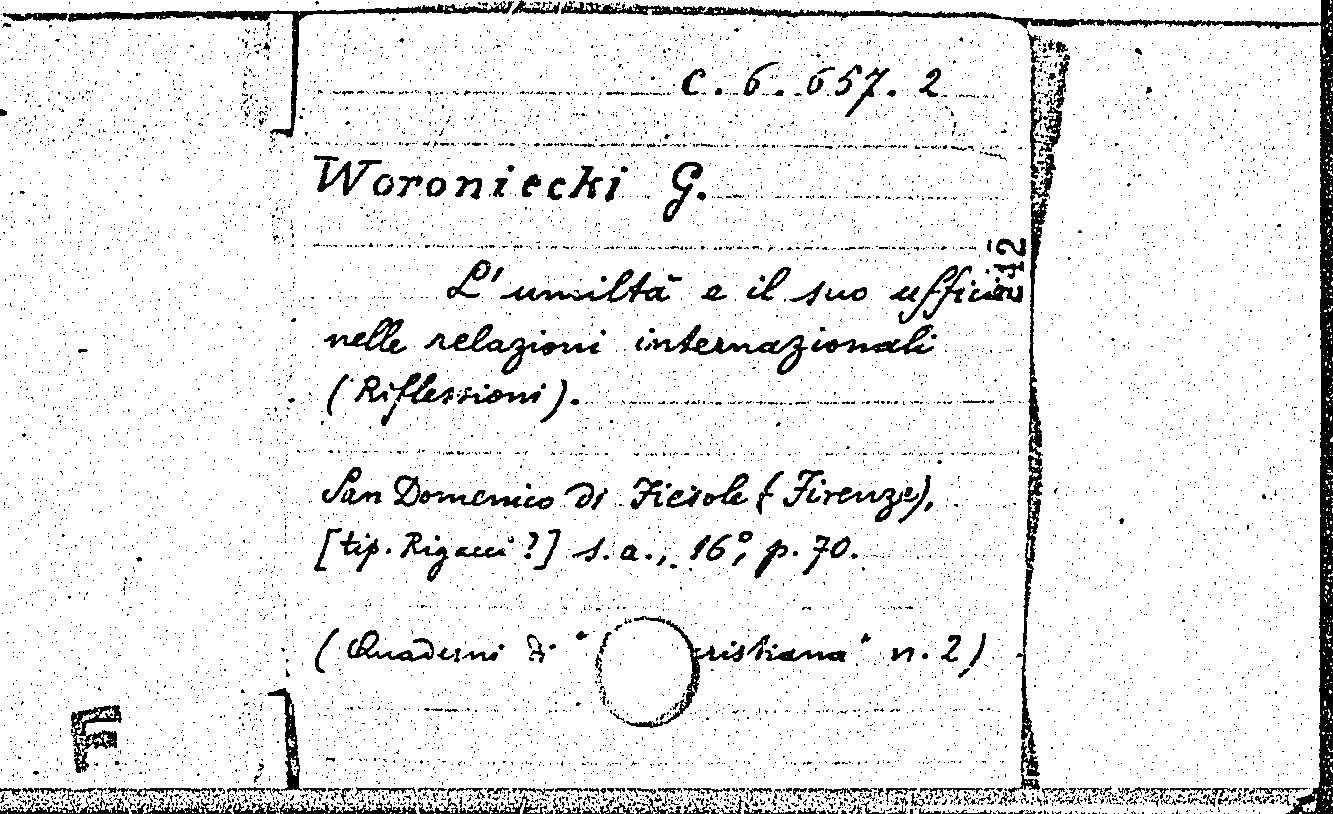 C. 6. 657. 2
Woroniecki G.
242
L'umiltà e il suo ufficio
nelle relazioni internazionali
(Riflessioni).
San Domenico di Fiesole (Firenze),
[tip. Rigacci ?] s.a., 16°, p. 70.
(Quaderni di " cristiana" n. 2)
F